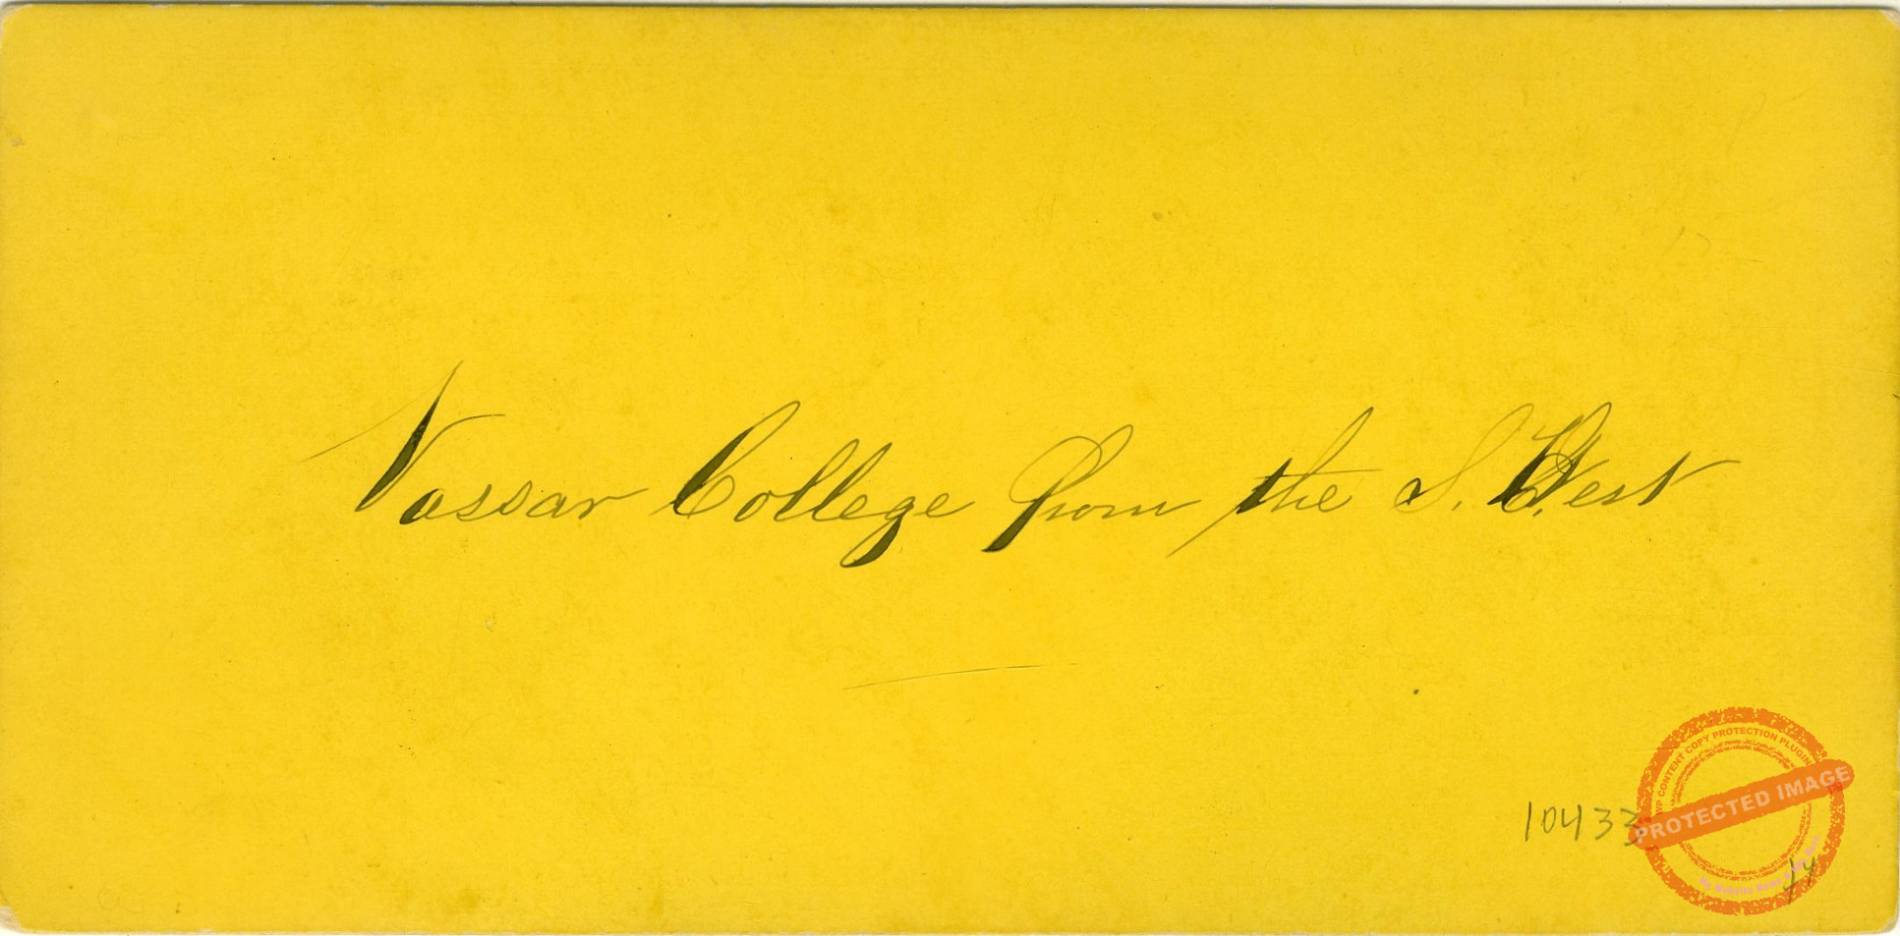 Vassar College from the S. West
10433
WP CONTENT COPY PROTECTION PLUGIN
PROTECTED IMAGE